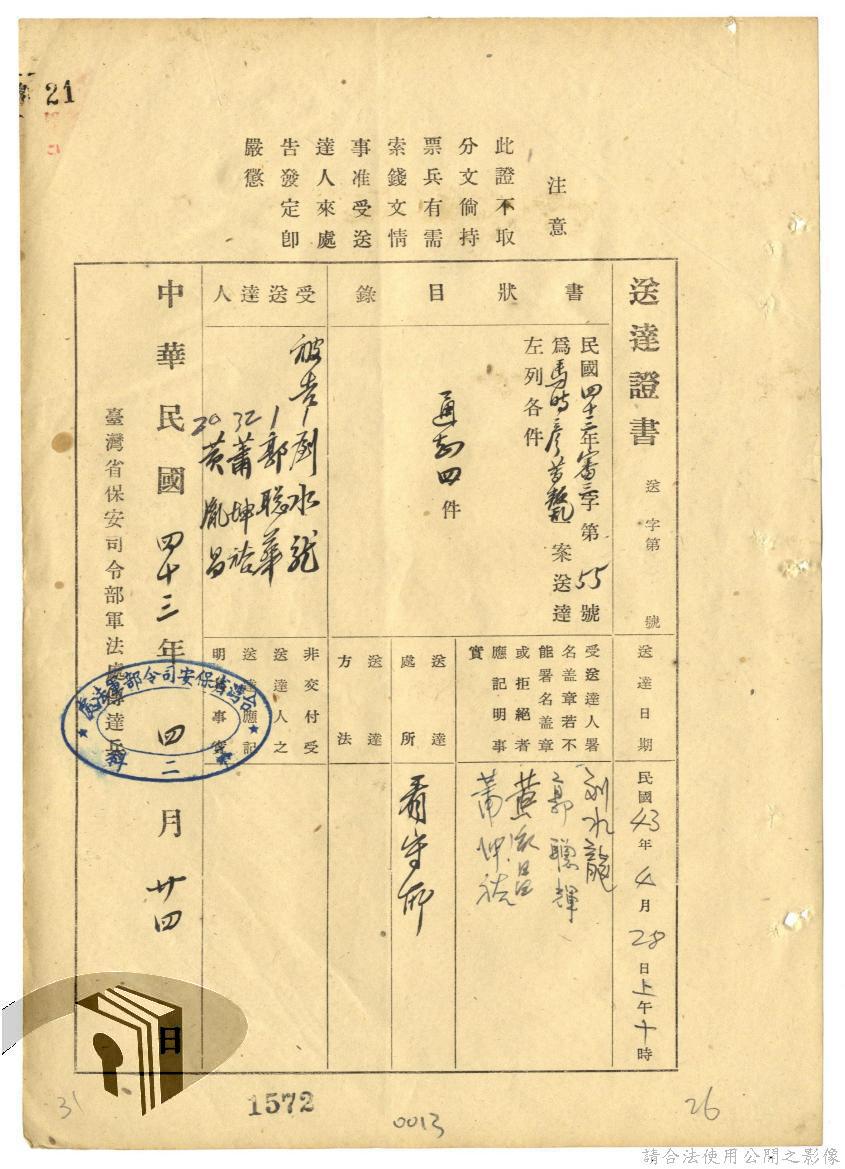 21
注意
此證不取
分文倘持
票兵有需
索錢文情
事准受送
達人來處
告發定卽
嚴懲
送達證書 送字第 號
送達日期
民國43年4月28日上午十時
書狀目錄
民國四十三年審三字第55號
爲馬時彥等叛亂一案送達
左列各件
通知四件
受送達人署
名盖章若不
能署名盖章
或拒絕者
應記明事
實
劉水龍
郭聰輝
黃胤昌
蕭坤裕
送達處所
看守所
送達方法
受送達人
被告劉水龍
1郭聡華
32蕭坤裕
20黃胤昌
非交付受
送達人之
送達應記
明其事實
中華民國四十三年四月廿四日
臺灣省保安司令部軍法處傳達兵
台灣省保安司令部軍法處
二
科
31
1572
0013
26
請合法使用公開之影像